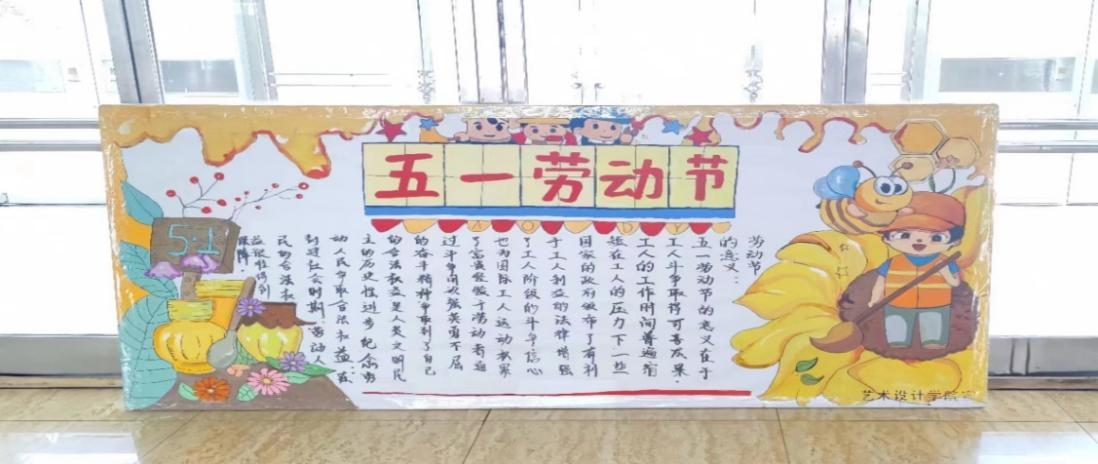 五一劳动节
5·1
劳动节
的意义：
五一劳动节的意义在于
工人斗争取得可喜成果，
工人的工作时间普遍缩
短在工人的压力下一些
国家的政府颁布了有利
于工人利益的法律增强
了工人阶级的斗争信心
也为国际工人运动积累
了宝贵经验于劳动者通
过斗争用顽强英勇不屈
的奋斗精神争取到了自己
的合法权益是人类文明民
主的历史性进步 纪念劳
动人民争取合法权益：在
封建社会时期，劳动人
民的合法权
益很难得到
保障.
艺术设计学院